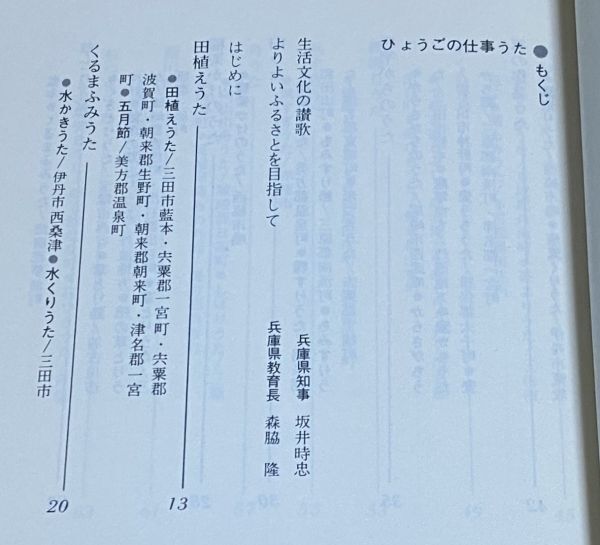 ●もくじ
ひょうごの仕事うた
生活文化の讃歌　兵庫県知事　坂井時忠
よりよいふるさとを目指して　兵庫県教育長　森脇　隆
はじめに
田植えうた 13
●田植えうた/三田市藍本・宍粟郡一宮町・宍粟郡
波賀町・朝来郡生野町・朝来郡朝来町・津名郡一宮
町●五月節/美方郡温泉町
くるまふみうた 20
●水かきうた/伊丹市西桑津●水くりうた/三田市